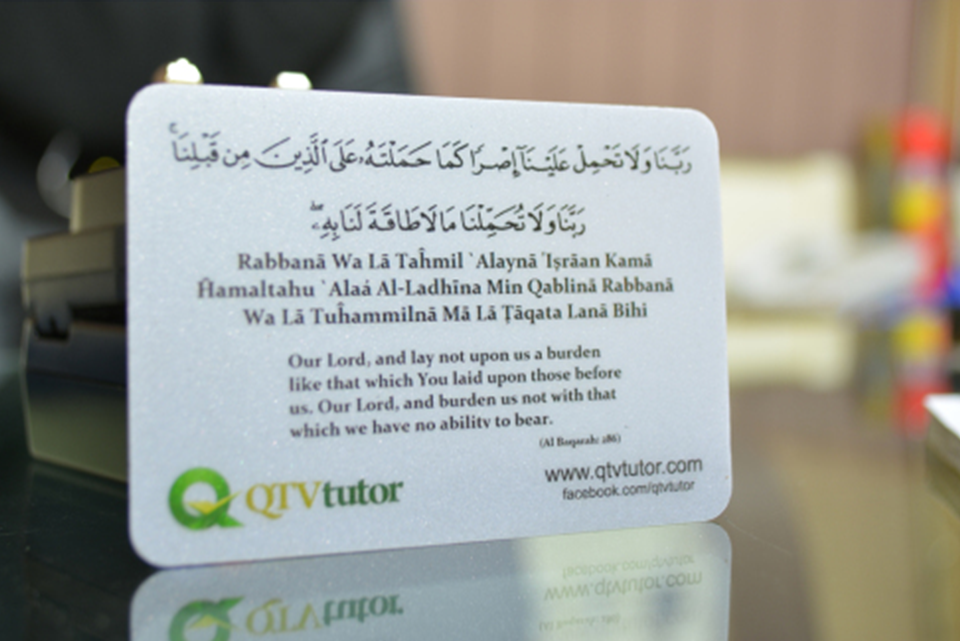 رَبَّنَا وَلَا تَحْمِلْ عَلَيْنَآ إِصْرًا كَمَا حَمَلْتَهُۥ عَلَى ٱلَّذِينَ مِن قَبْلِنَا ۚ
رَبَّنَا وَلَا تُحَمِّلْنَا مَا لَا طَاقَةَ لَنَا بِهِۦ ۖ
Rabbanā Wa Lā Taĥmil `Alaynā 'Işrāan Kamā
Ĥamaltahu `Alaá Al-Ladhīna Min Qablinā Rabbanā
Wa Lā Tuĥammilnā Mā Lā Ţāqata Lanā Bihi
Our Lord, and lay not upon us a burden
like that which You laid upon those before
us. Our Lord, and burden us not with that
which we have no ability to bear.
(Al Baqarah: 286)
QTVtutor
www.qtvtutor.com
facebook.com/qtvtutor